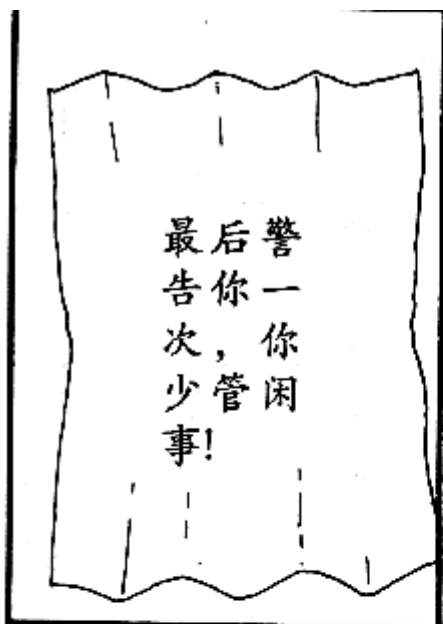 最后警
告你一
次，你
少管闲
事！